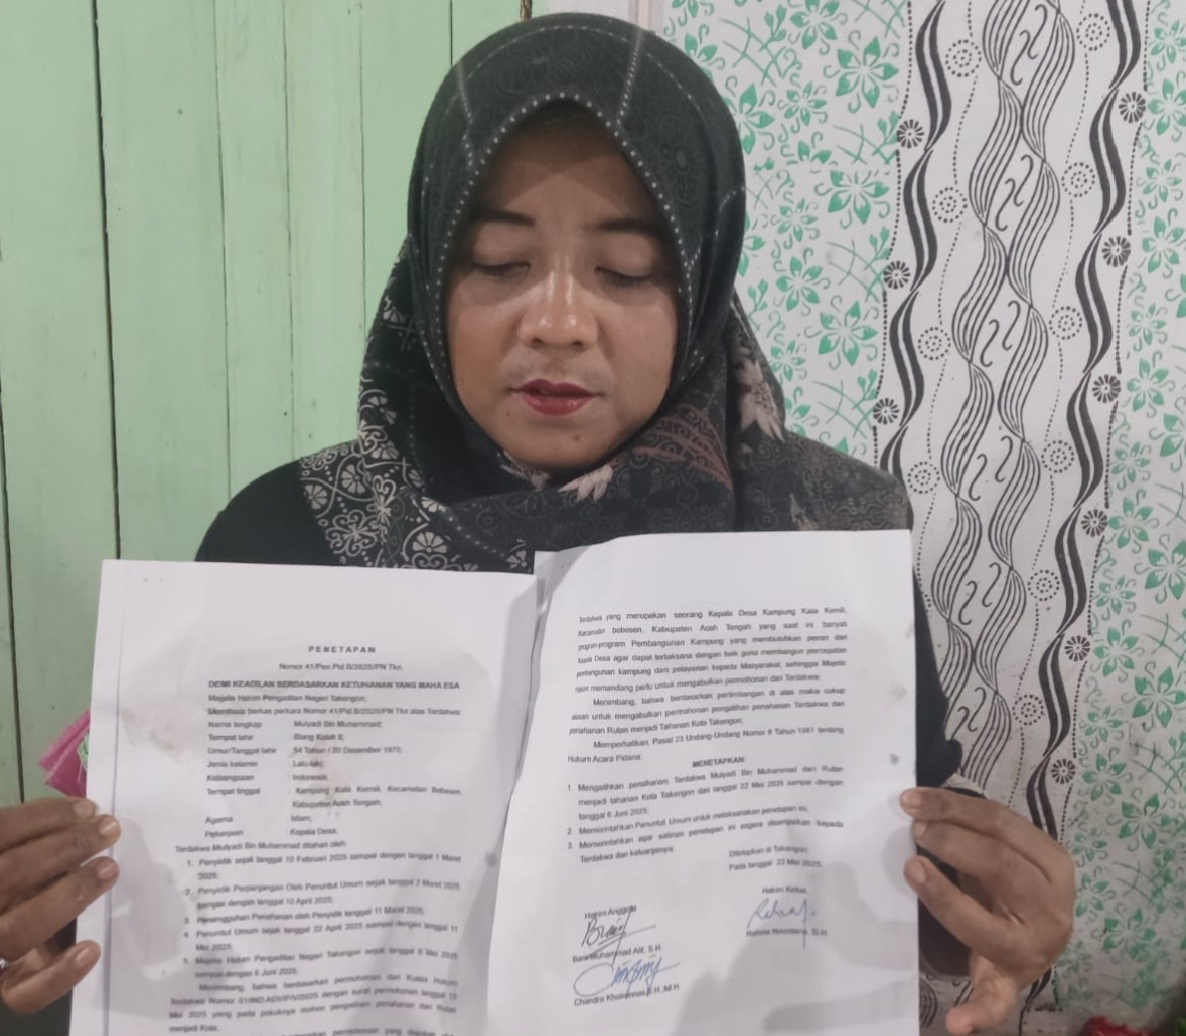 PENETAPAN
Nomor 41/Pen.Pid.B/2025/PN Tkn
DEMI KEADILAN BERDASARKAN KETUHANAN YANG MAHA ESA
Majelis Hakim Pengadilan Negeri Takengon;
Membaca berkas perkara Nomor 41/Pid.B/2025/PN Tkn atas Terdakwa:
Nama lengkap : Mulyadi Bin Muhammad;
Tempat lahir : Blang Kolak II;
Umur/Tanggal lahir : 54 Tahun / 20 Desember 1970;
Jenis kelamin : Laki-laki;
Kebangsaan : Indonesia;
Tempat tinggal : Kampung Kala Kemili, Kecamatan Bebesen,
Kabupaten Aceh Tengah;
Agama : Islam;
Pekerjaan : Kepala Desa;
Terdakwa Mulyadi Bin Muhammad ditahan oleh:
1. Penyidik sejak tanggal 10 Februari 2025 sampai dengan tanggal 1 Maret
2025;
2. Penyidik Perpanjangan Oleh Penuntut Umum sejak tanggal 2 Maret 2025
sampai dengan tanggal 10 April 2025;
3. Penangguhan Penahanan oleh Penyidik tanggal 11 Maret 2025;
4. Penuntut Umum sejak tanggal 22 April 2025 sampai dengan tanggal 11
Mei 2025;
5. Majelis Hakim Pengadilan Negeri Takengon sejak tanggal 8 Mei 2025
sampai dengan tanggal 6 Juni 2025;
Menimbang, bahwa berdasarkan permohonan dari Kuasa Hukum
Terdakwa Nomor 01/IND.ADV/P/V/2025 dengan surat permohonan tanggal
Mei 2025 yang pada pokoknya mohon pengalihan penahanan dari Rutan
menjadi Kota;
berdasarkan permohonan yang diajukan
Terdakwa yang merupakan seorang Kepala Desa Kampung Kala Kemili,
Kecamatan bebesen, Kabupaten Aceh Tengah yang saat ini banyak
program-program Pembangunan Kampung yang membutuhkan peran dari
Kepala Desa agar dapat terlaksana dengan baik guna membangun percepatan
pembangunan kampung dan pelayanan kepada Masyarakat, sehingga Majelis
Hakim memandang perlu untuk mengabulkan permohonan dari Terdakwa;
Menimbang, bahwa berdasarkan pertimbangan di atas maka cukup
alasan untuk mengabulkan permohonan pengalihan penahanan Terdakwa dari
penahanan Rutan menjadi Tahanan Kota Takengon;
Memperhatikan, Pasal 23 Undang-Undang Nomor 8 Tahun 1981 tentang
Hukum Acara Pidana;
MENETAPKAN:
1. Mengalihkan penahanan Terdakwa Mulyadi Bin Muhammad dari Rutan
menjadi tahanan Kota Takengon dari tanggal 22 Mei 2025 sampai dengan
tanggal 6 Juni 2025;
2. Memerintahkan Penuntut Umum untuk melaksanakan penetapan ini;
3. Memerintahkan agar salinan penetapan ini segera disampaikan kepada
Terdakwa dan keluarganya.
Ditetapkan di Takengon;
Pada tanggal 22 Mei 2025;
Hakim Anggota
Hakim Ketua,
Muhammad Alif, S.H.
Rahma Novatiana, S.H.
Chandra S.H.,M.H.